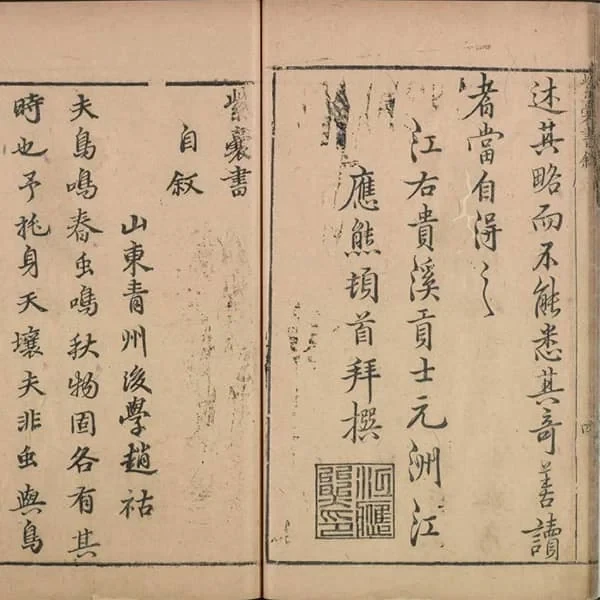 述其略而不能悉其奇善讀
者當自得之
江右貴溪貢士元洲江
應熊頓首拜撰
江應熊印
紫囊書
自叙
山東青州後學趙祜
夫鳥鳴春虫鳴秋物固各有其
時也予托身天壤夫非虫與鳥